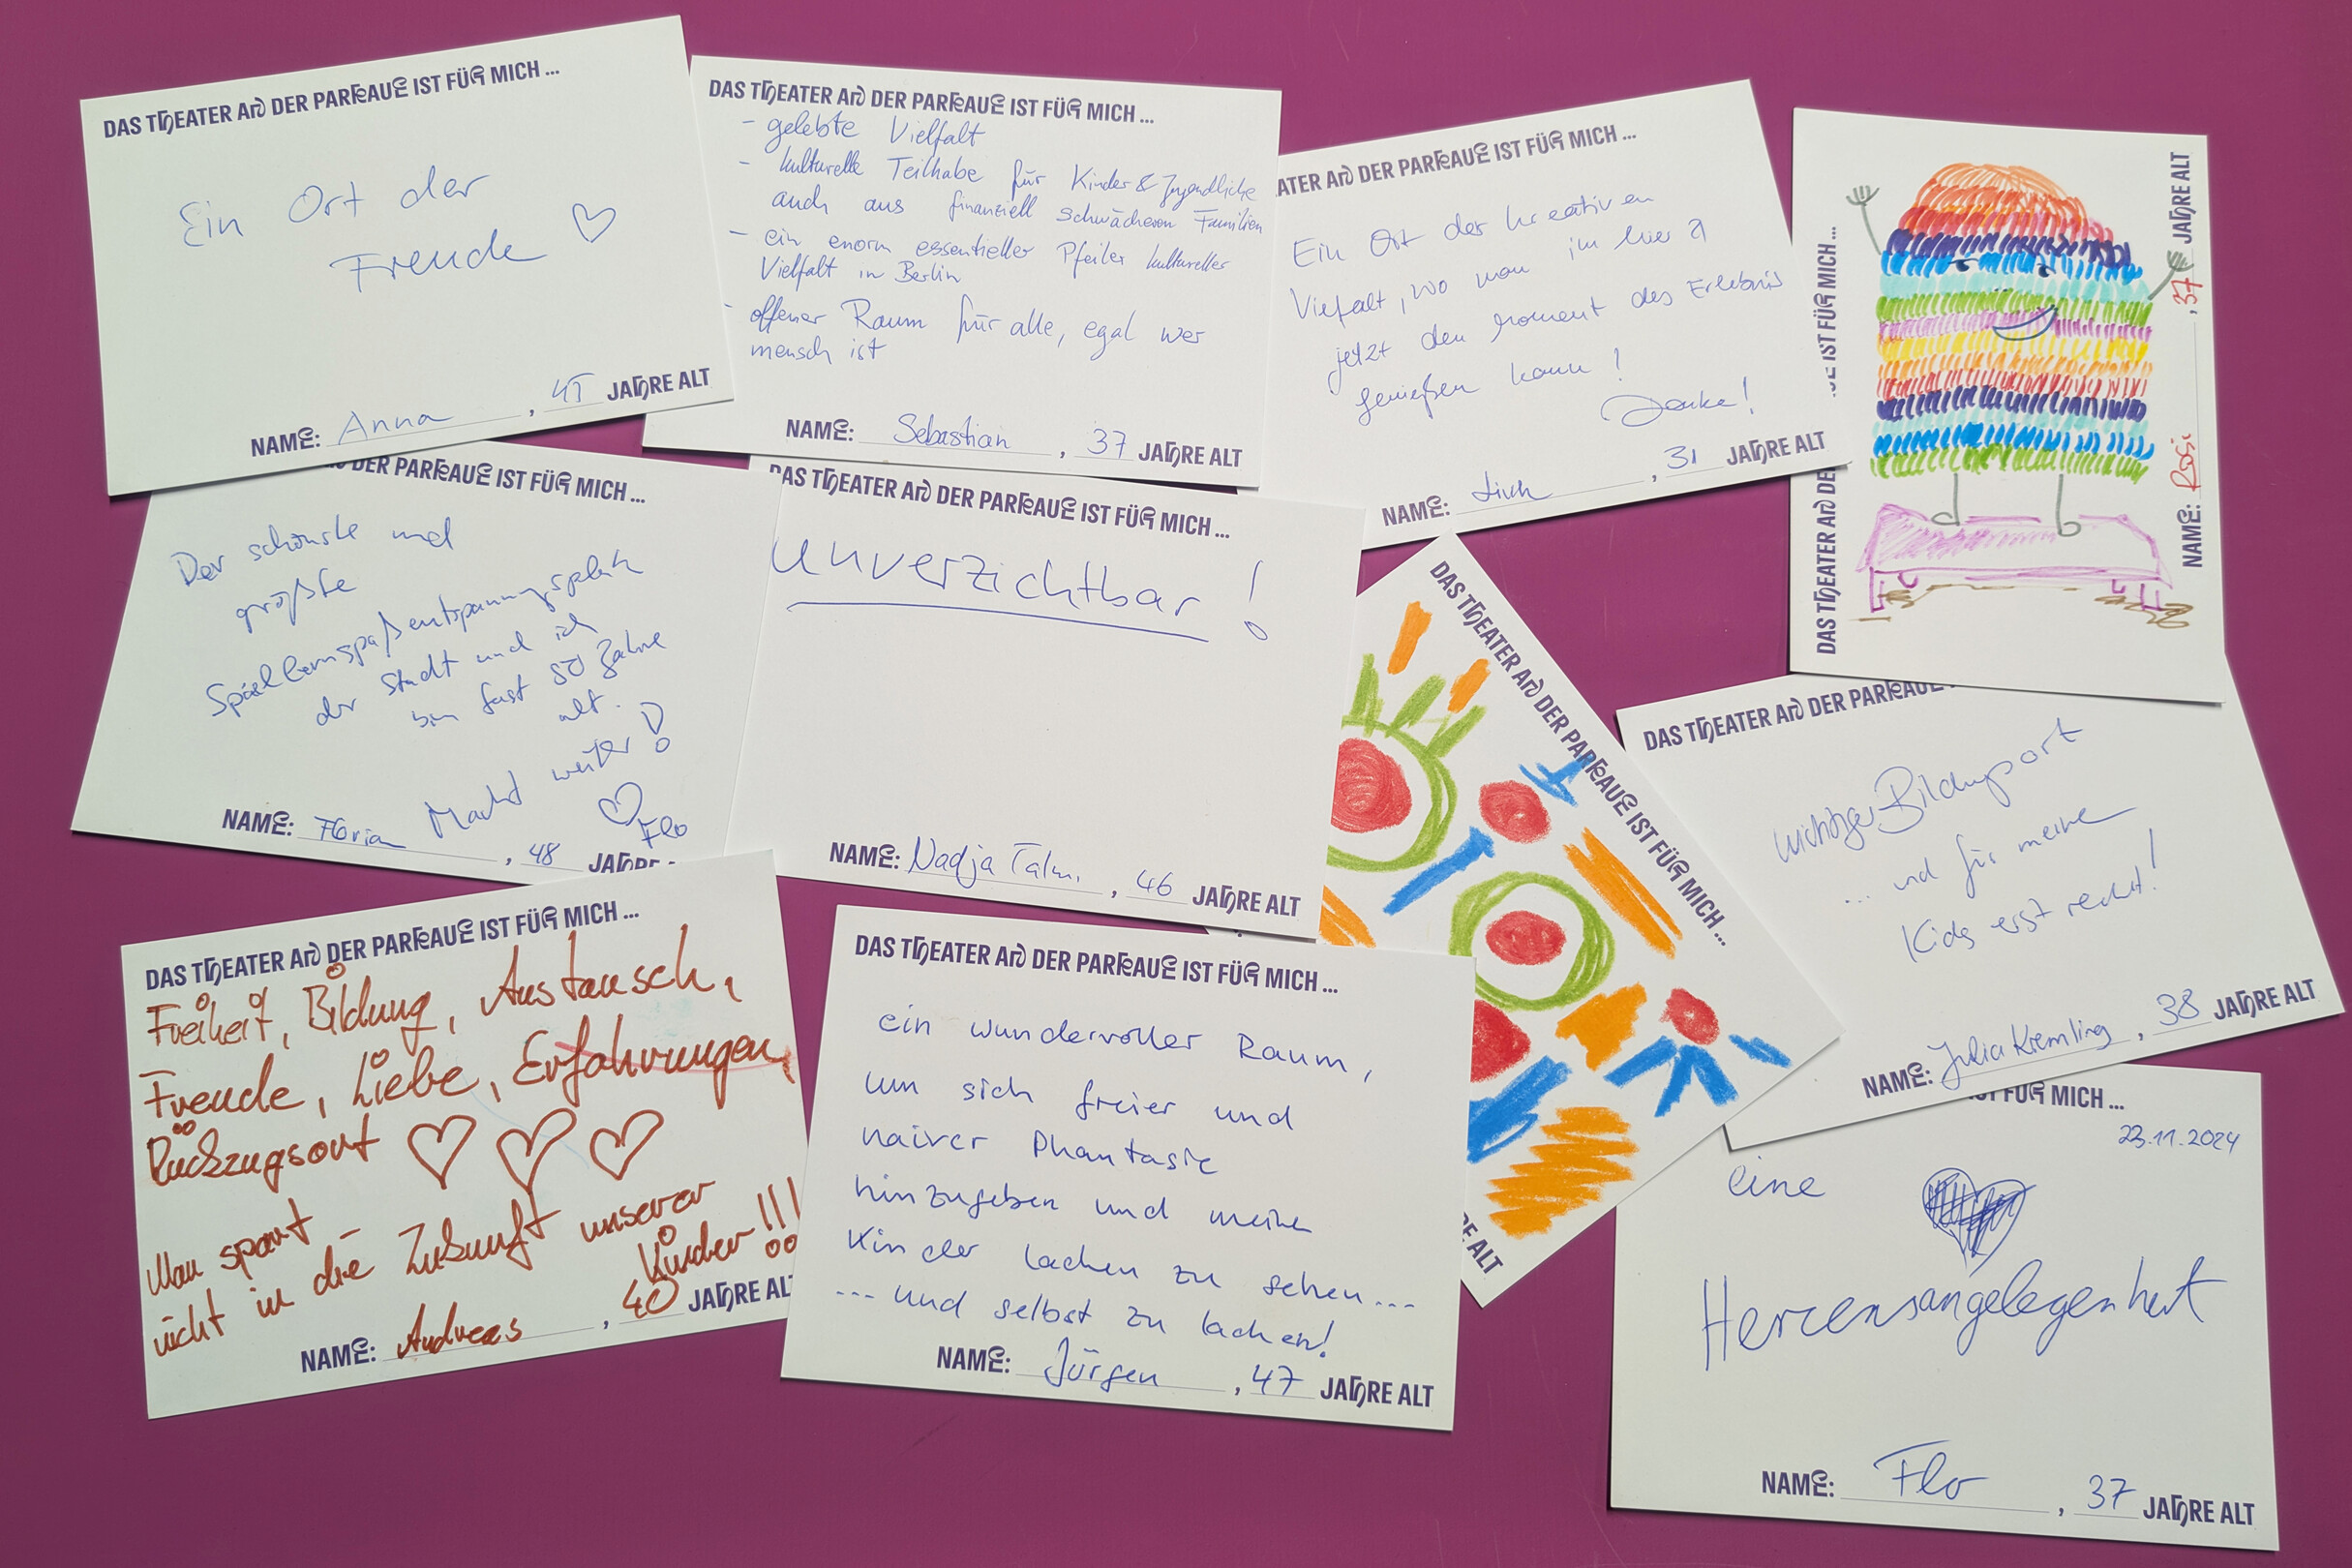 DAS THEATER AN DER PARKAUE IST FÜR MICH ...
Ein Ort der
Freude ♡
NAME: Anna, 45 JAHRE ALT
DAS THEATER AN DER PARKAUE IST FÜR MICH ...
- gelebte Vielfalt
- kulturelle Teilhabe für Kinder & Jugendliche
auch aus finanziell schwächeren Familien
- ein enorm essentieller Pfeiler kultureller
Vielfalt in Berlin
- offener Raum für alle, egal wer
mensch ist
NAME: Sebastian, 37 JAHRE ALT
ATER AN DER PARKAUE IST FÜR MICH ...
Ein Ort der kreativen
Vielfalt, wo man im hier &
jetzt den Moment des Erlebnis
genießen kann!
Danke!
NAME: , 31 JAHRE ALT
DAS THEATER AN DE
UE IST FÜR MICH ...
NAME: Rosi, 37 JAHRE ALT
DER PARKAUE IST FÜR MICH ...
Der schönste und
größte
Spiellernspaßentspannungsplatz
der Stadt und ich
bin fast 50 Jahre
alt.
Macht weiter!
♡
Flo
NAME: Florian, 48 JAHRE
DAS THEATER AN DER PARKAUE IST FÜR MICH ...
unverzichtbar!
NAME: Nadja, 46 JAHRE ALT
DAS THEATER AN DER PARKAUE IST FÜR MICH ...
ALT
DAS THEATER AN DER PARKAUE
wichtiger Bildungsort
... und für meine
Kids erst recht!
NAME: Julia Kremling, 38 JAHRE ALT
DAS THEATER AN DER PARKAUE IST FÜR MICH ...
Freiheit, Bildung, Austausch,
Freude, Liebe, Erfahrungen,
Rückzugsort ♡ ♡ ♡
Man spart
nicht in die Zukunft unserer
Kinder!!!
NAME: Andreas, 40 JAHRE AL
DAS THEATER AN DER PARKAUE IST FÜR MICH ...
ein wundervoller Raum,
um sich freier und
naiver Phantasie
hinzugeben und meine
Kinder lachen zu sehen...
... und selbst zu lachen!
NAME: Jürgen, 47 JAHRE ALT
IST FÜR MICH ...
23.11.2024
eine
Herzensangelegenheit
NAME: Flo, 37 JAHRE ALT